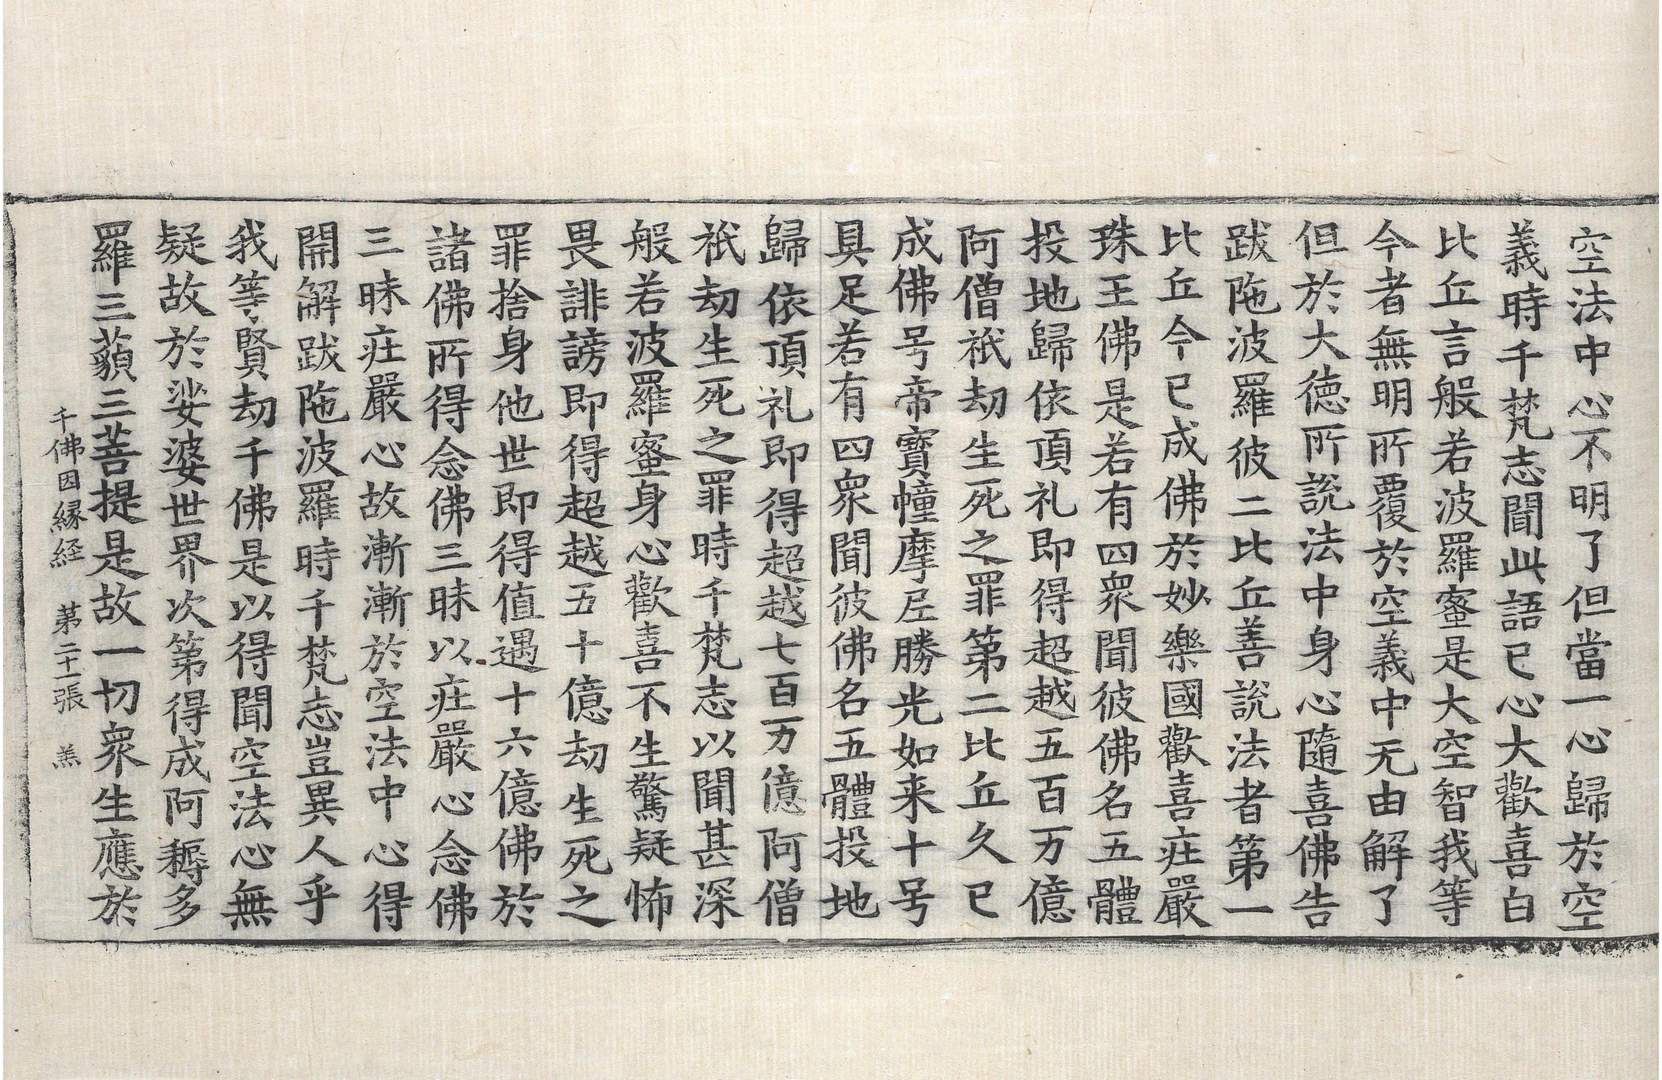 空法中心不明了但當一心歸於空
義時千梵志聞此語已心大歡喜白
比丘言般若波羅蜜是大空智我等
今者無明所覆於空義中无由解了
但於大德所說法中身心隨喜佛告
跋陁波羅彼二比丘善說法者第一
比丘今已成佛於妙樂國歡喜莊嚴
珠王佛是若有四衆聞彼佛名五體
投地歸依頂礼即得超越五百万億
阿僧祇劫生死之罪第二比丘久已
成佛号帝寶幢摩尼勝光如来十号
具足若有四衆聞彼佛名五體投地
歸依頂礼即得超越七百万億阿僧
祇劫生死之罪時千梵志以聞甚深
般若波羅蜜身心歡喜不生驚疑怖
畏誹謗即得超越五十億劫生死之
罪捨身他世即得值遇十六億佛於
諸佛所得念佛三昧以莊嚴心念佛
三昧莊嚴心故漸漸於空法中心得
開解跋陁波羅時千梵志豈異人乎
我等賢劫千佛是以得聞空法心無
疑故於娑婆世界次第得成阿耨多
羅三藐三菩提是故一切衆生應於
千佛因縁経 苐二十一張 羔